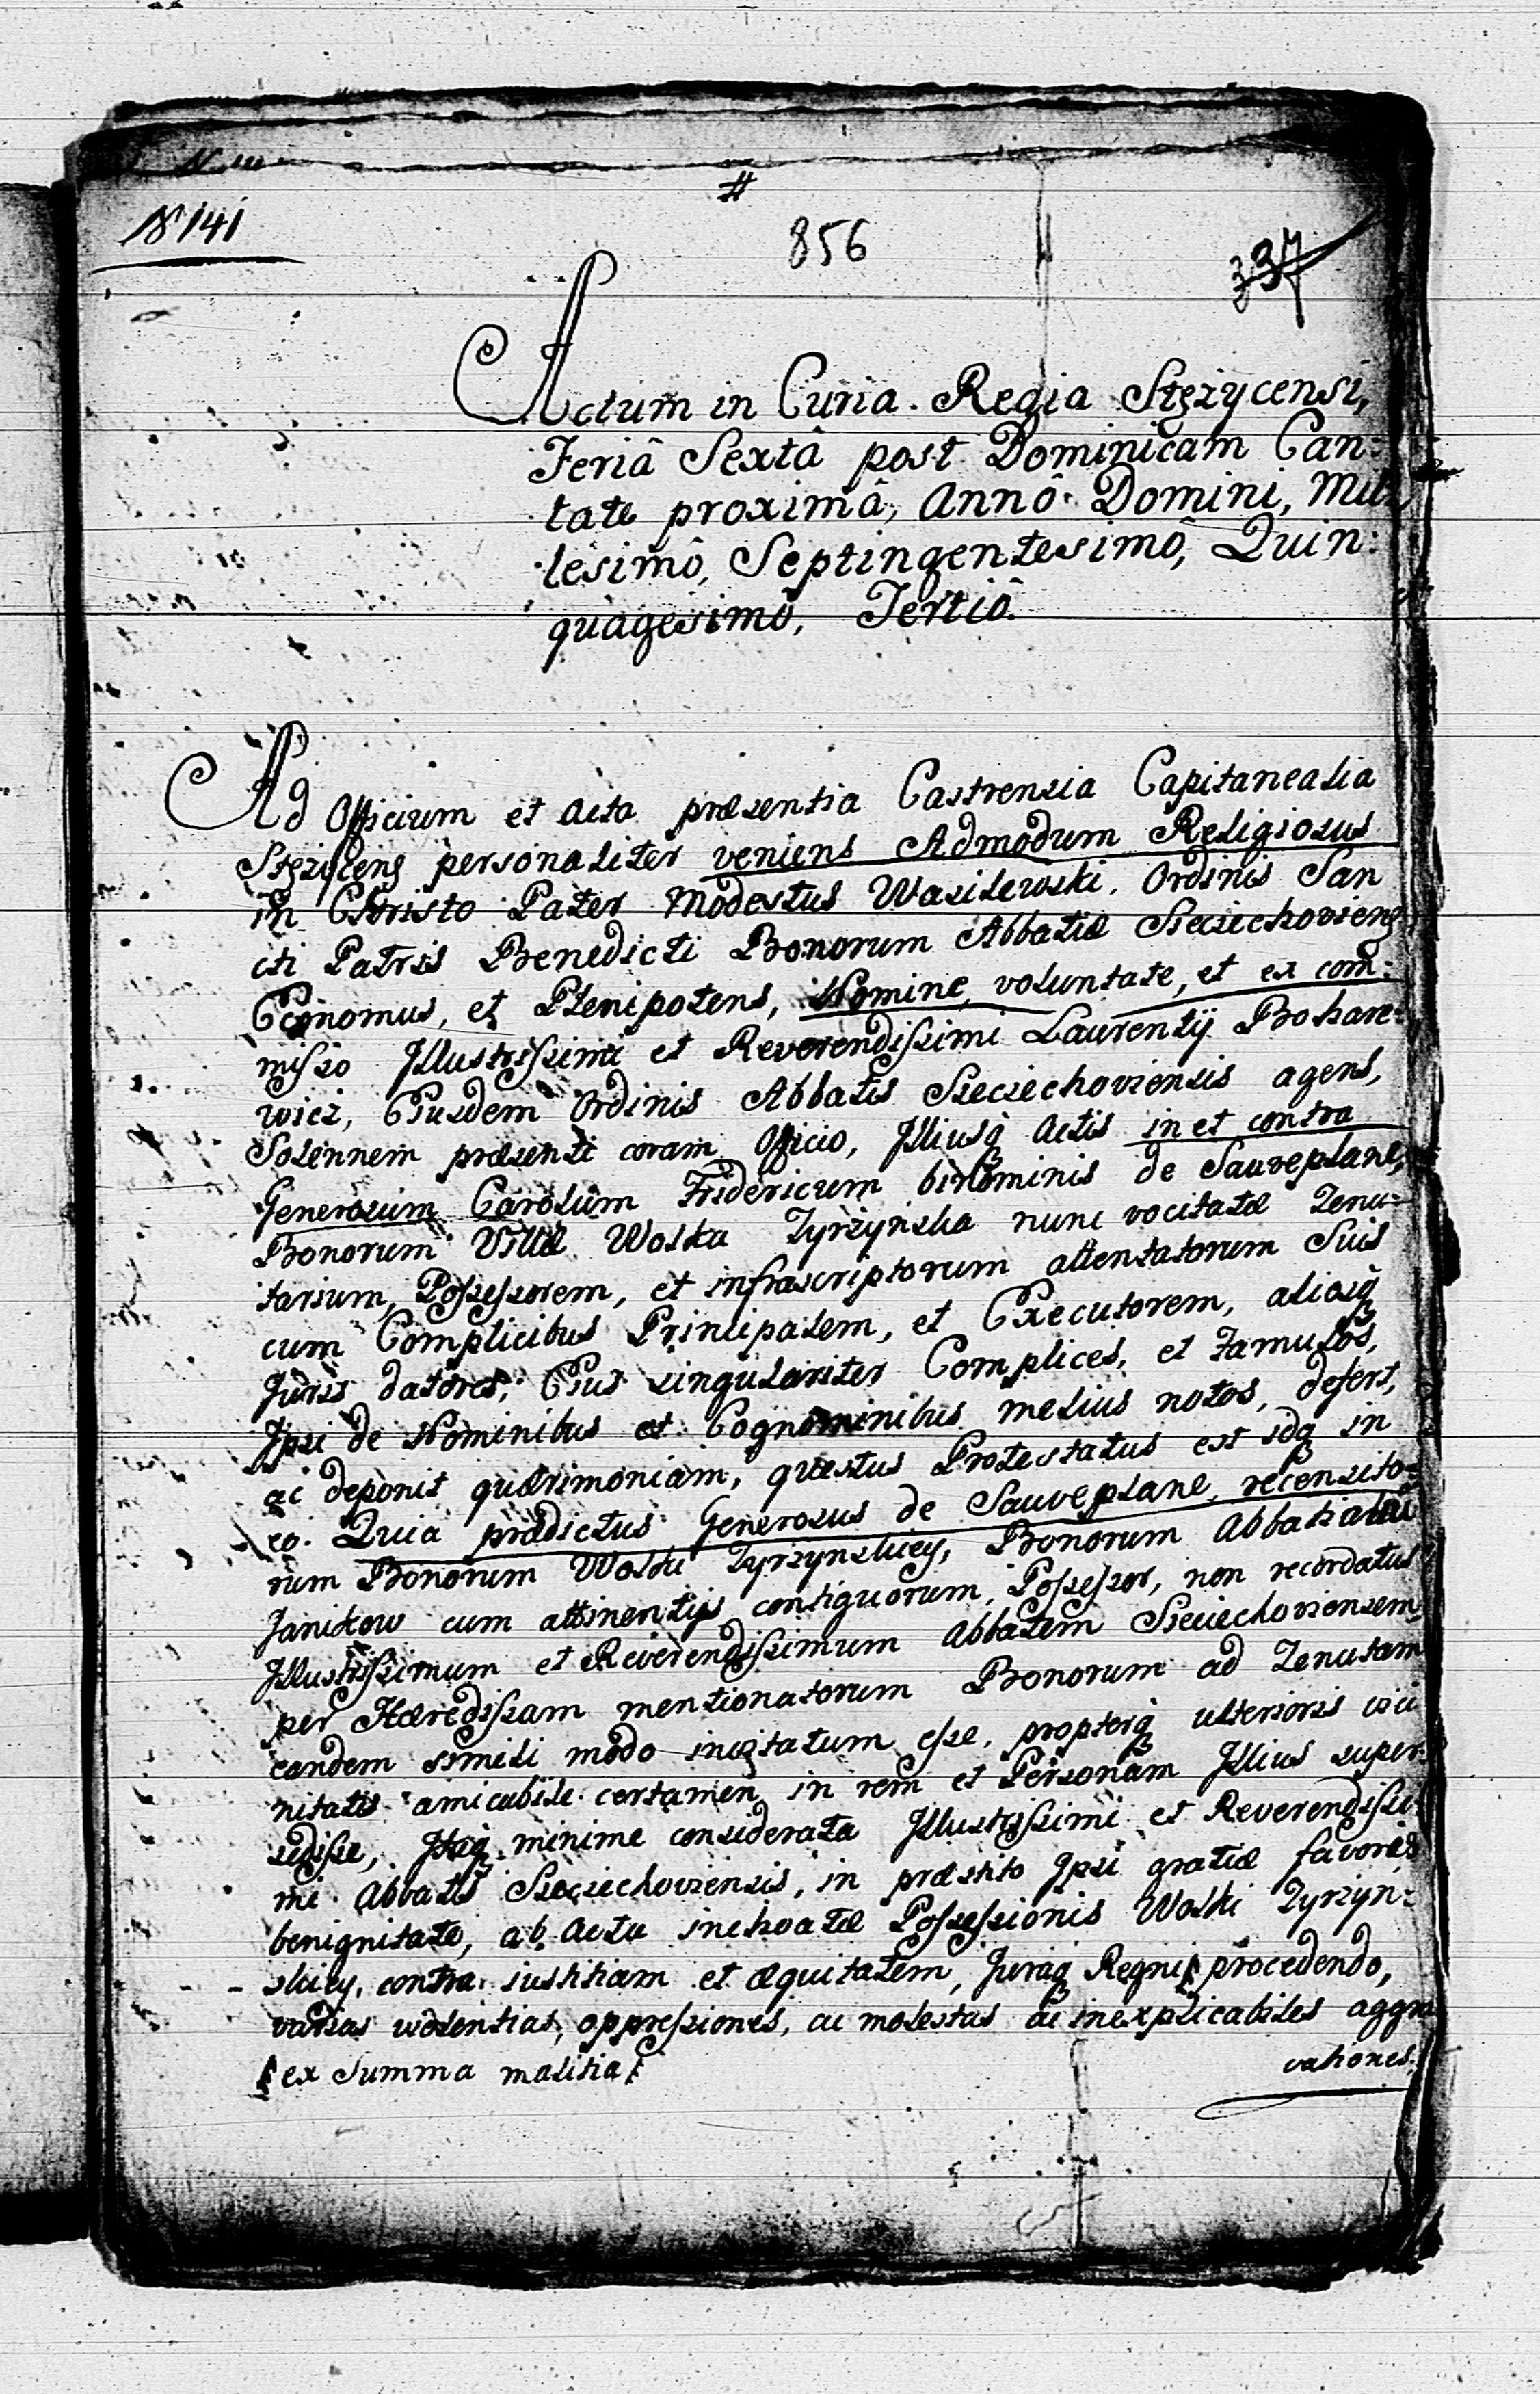 N 141
#
856
337
Actum in Curia Regia Stężycensi,
Feriâ Sextâ post Dominicam Can:
tate proximâ, Annô Domini, Mil
lesimô, Septingentesimô, Quin:
quagesimô, Tertiô.
Ad Officium et Acta præsentia Castrensia Capitanealia
Stężycens personaliter veniens Admodum Religiosus
in Christo Pater Modestus Wasilewski, Ordinis San
cti Patris Benedicti Bonorum Abbatiæ Sieciechoviens
Œconomus, et Plenipotens, Nomine, voluntate, et ex com:
misso Illustrissimi et Reverendissimi Laurentij Bohare:
wicz, Eiusdem Ordinis Abbatis Sieciechoviensis agens,
Solennem præsenti coram Officio, Illiusq Actis in et contra
Generosum Carolum Fridericum binominis de Sauveplane,
Bonorum Villæ Wolka Zyrzynska nunc vocitatæ Tenu:
tarium, Possessorem, et infrascriptorum attentatorum Suis
cum Complicibus Principalem, et Executorem, aliosq
Juris datores, Eius singulariter Complices, et Famulos,
Ipsi de Nominibus et Cognominibus melius notos, defert,
ac deponit quærimoniam, questus Protestatus est idq in
eo. Quia prædictus Generosus de Sauveplane, recensito:
rum Bonorum Wolki Zyrzynskiey, Bonorum Abbatialiu
Janikow cum attinentijs contiguorum, Possessor, non recordatus
Illustrissimum et Reverendissimum Abbatem Sieciechoviensem
per Hæredissam mentionatorum Bonorum ad Tenutam
eandem simili modo invitatum esse, propterq ulterioris vici
nitatis amicabile certamen in rem et Personam Illius super:
sedisse, Itaq minime considerata Illustrissimi et Reverendissi
mi Abbatis Sieciechoviensis, in præstito Ipsi gratiæ favores
benignitate, ab Actu inchoatæ Possessionis Wolki Zyrzyn:
skiey, contra iustitiam et æquitatem, Juraq Regni procedendo,
varias violentias, oppressiones, ac molestas ac inexplicabiles aggra
ex summa malitia
vationes